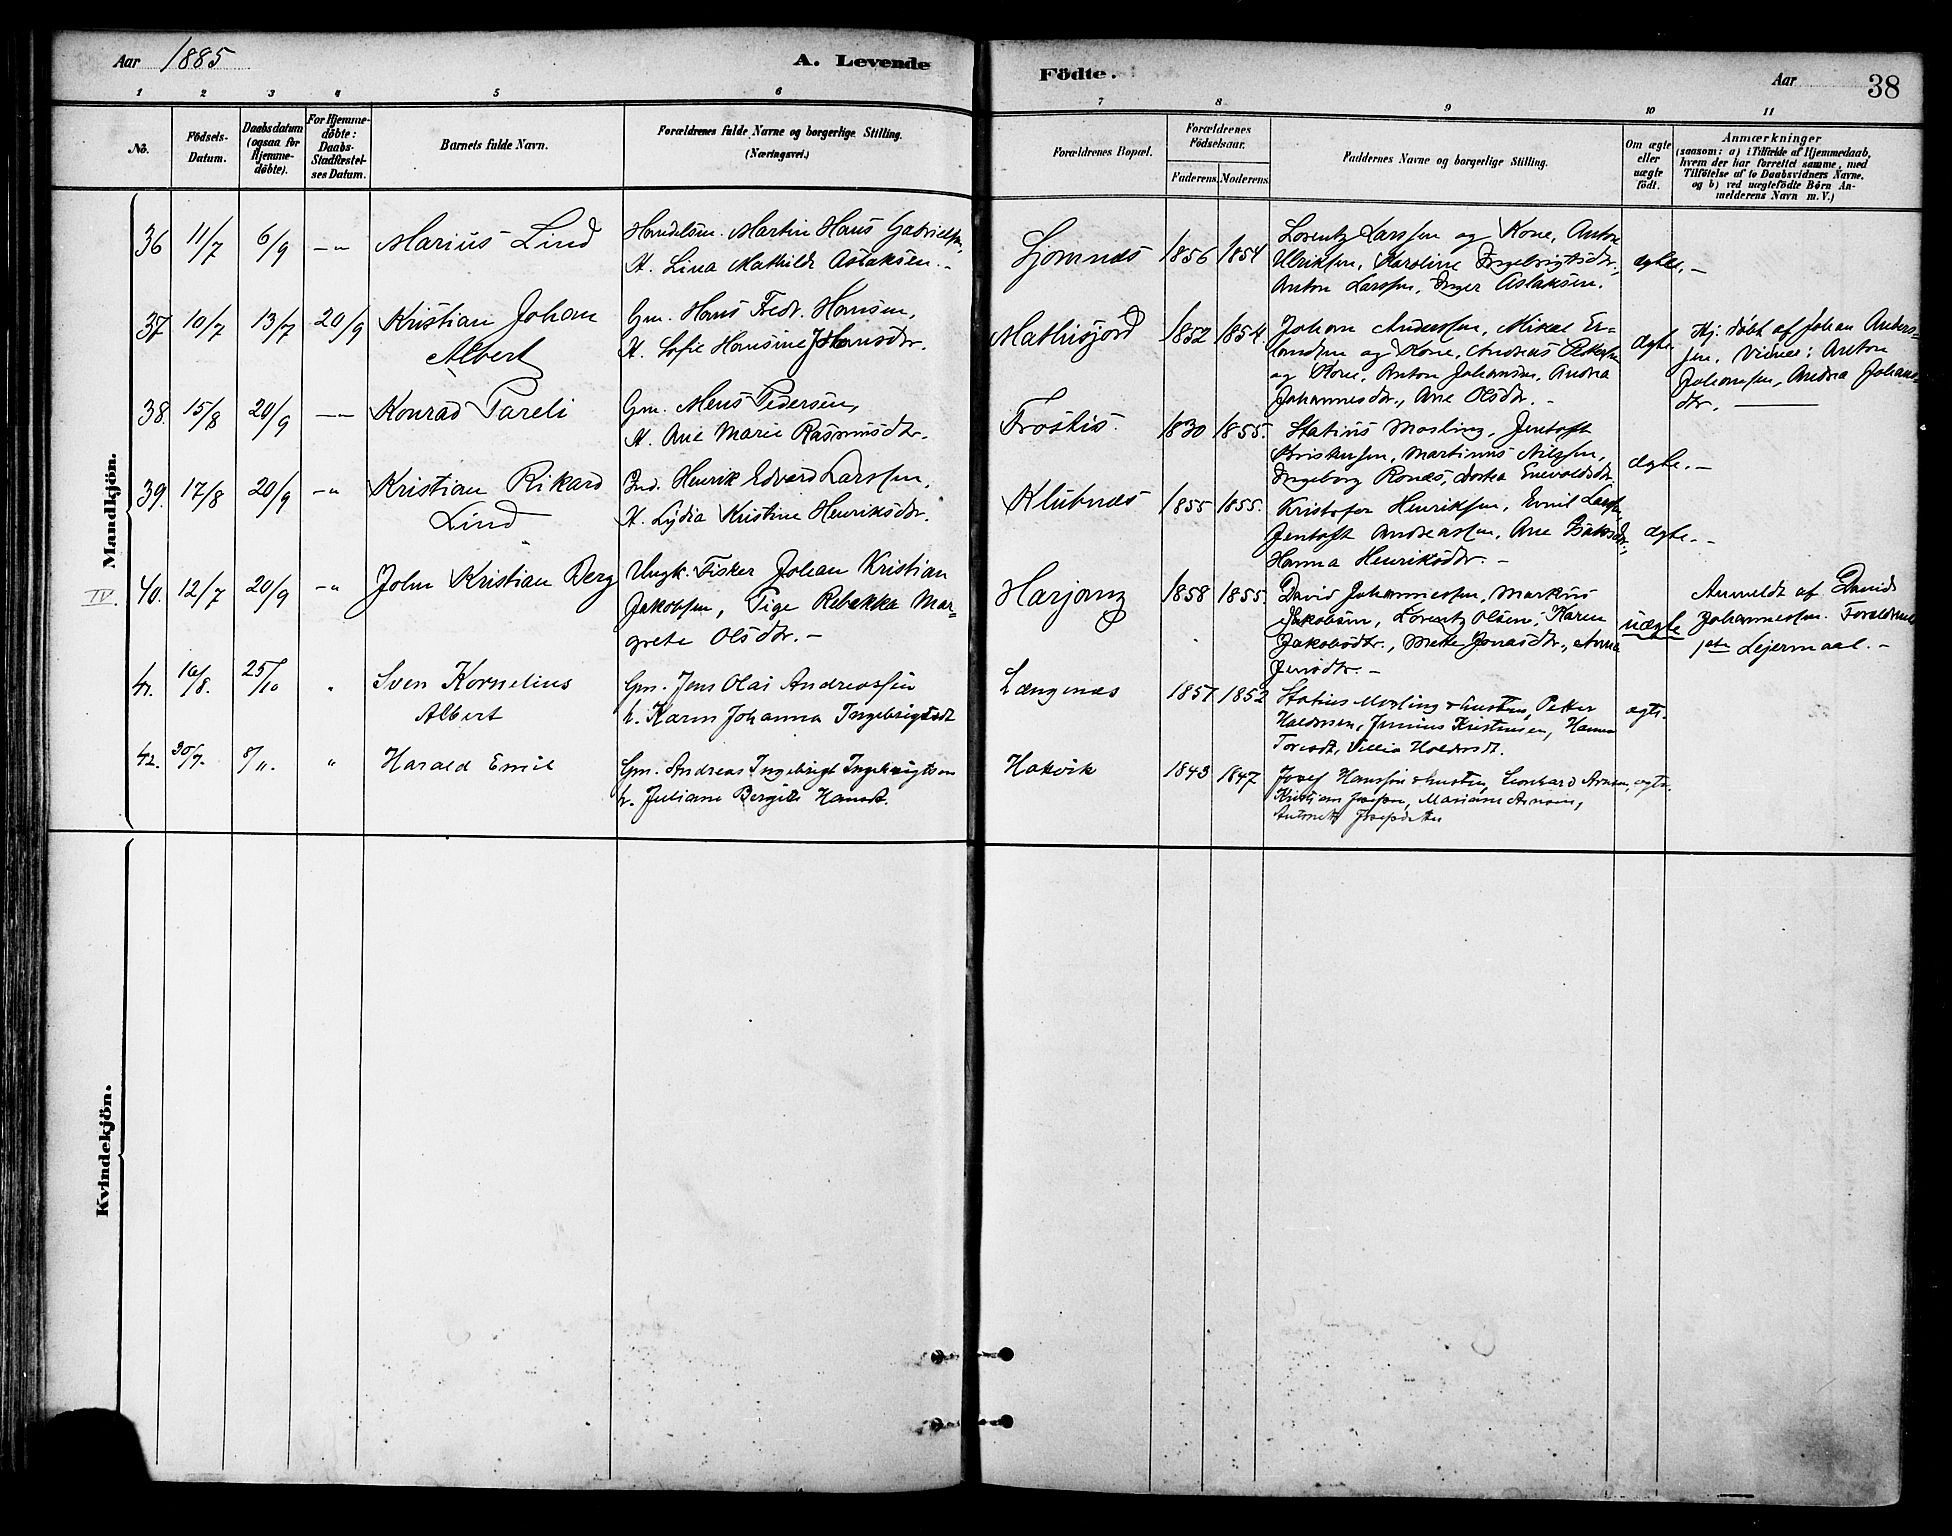 Aar 1885
A. Levende
Födte.
Aar
38
1 2 3 4 5 6 7 8 9 10 11
No.
Födsels-
Datum.
Daabsdatum
(ogsaa for
Hjemme-
döbte).
For Hjemme-
döbte:
Daabs-
Stadfæstel-
ses Datum.
Barnets fulde Navn.
Forældrenes fulde Navne og borgerlige Stilling.
(Næringsvei.)
Forældrenes Bopæl.
Forældrenes
Födselsaar.
Faderens. Moderens.
Faddernes Navne og borgerlige Stilling.
Om ægte
eller
uægte
födt.
Anmærkninger
(saasom: a) i Tilfælde af Hjemmedaab,
hvem der har forrettet samme, med
Tilföielse af to Daabsvidners Navne,
og b) ved uægtefödte Börn An-
melderens Navn m. V.)
Mandkjön.
36 11/7 6/9 Marius Lind
Martin Hans Gabrielsen,
H. Lina Mathilde Aslaksen.
Ljomnæs 1856 1854
Lorentz Larssen og Kone, Anton
Ulriksen, Karoline Ingebrigtsdtr.,
Anton Larssen, Inger Aslaksen.
ægte.
37 10/7 13/7 20/9 Kristian Johan
Albert
Gm. Hans Fredr. Hansen,
H. Sofie Hansine Hansdtr.
Mathisjord 1852 1854
Johan Anderssen, Mikal Er-
landsen og Kone, Andreas Pettersen
og Kone, Anton Johansen, Andrea
Johannesdtr., Ane Olsdtr.
ægte
Hj. döbt af Johan Anders-
sen, Vidner: Anton
Johansen, Andrea Johans-
dtr.
38. 15/8 20/9 Konrad Pareli
Gm. Mens Pedersen,
H. Ane Marie Rasmusdtr.
1830 1855.
Statius Mosling, Jentoft
Kristensen, Martinus Nilssen,
Ingeborg Ronæs, Enevoldsdtr.
ægte.
39. 17/8 20/9 Kristian Rikard
Lind
Ind. Henrik Edvard Larssen,
H. Lydia Kristine Henriksdtr.
Klubnæs 1855 1855.
Kristofer Henriksen, Emil Larssen,
Jentoft Andreassen, Ane Isaksdtr.,
Hanna Henriksdtr.
ægte.
IV. 40. 12/7 20/9 John Kristian Berg
Ungk. Fisker Johan Kristian
Jakobsen, Pige Rebekka Mar-
grete Olsdtr.
Harjang 1858 1855.
David Johannessen, Markus
Jakobsen, Lorentz Olsen, Karen
Jakobsdtr., Mette Jonasdtr., Anna
Jensdtr.
uægte
Anmeldt af David
Johannessen. Forældrenes
1ste Leiermaal.
41. 16/8. 25/10 Sven Kornelius
Albert
Gm. Jens Olai Andreassen
h. Karen Johanna Ingebrigtsdt
Længenæs 1857 1852
Statius Mosling & hustru, Petter
Haldorsen, Jenius Kristensen, Hanna
Toresdt, Haldorsdt.
ægte.
42. 30/7. 8/11. Harald Emil
Gm. Andreas Ingebrigt Ingebrigtsen
h. Juliane Bergite Hansdt.
Hakvik 1843 1847
Josef Hanssen & hustru, Leonhard Arnsen,
Kristian Josefsen, Mariane Arnsen,
Josefsdatter
ægte.
Kvindekjön.